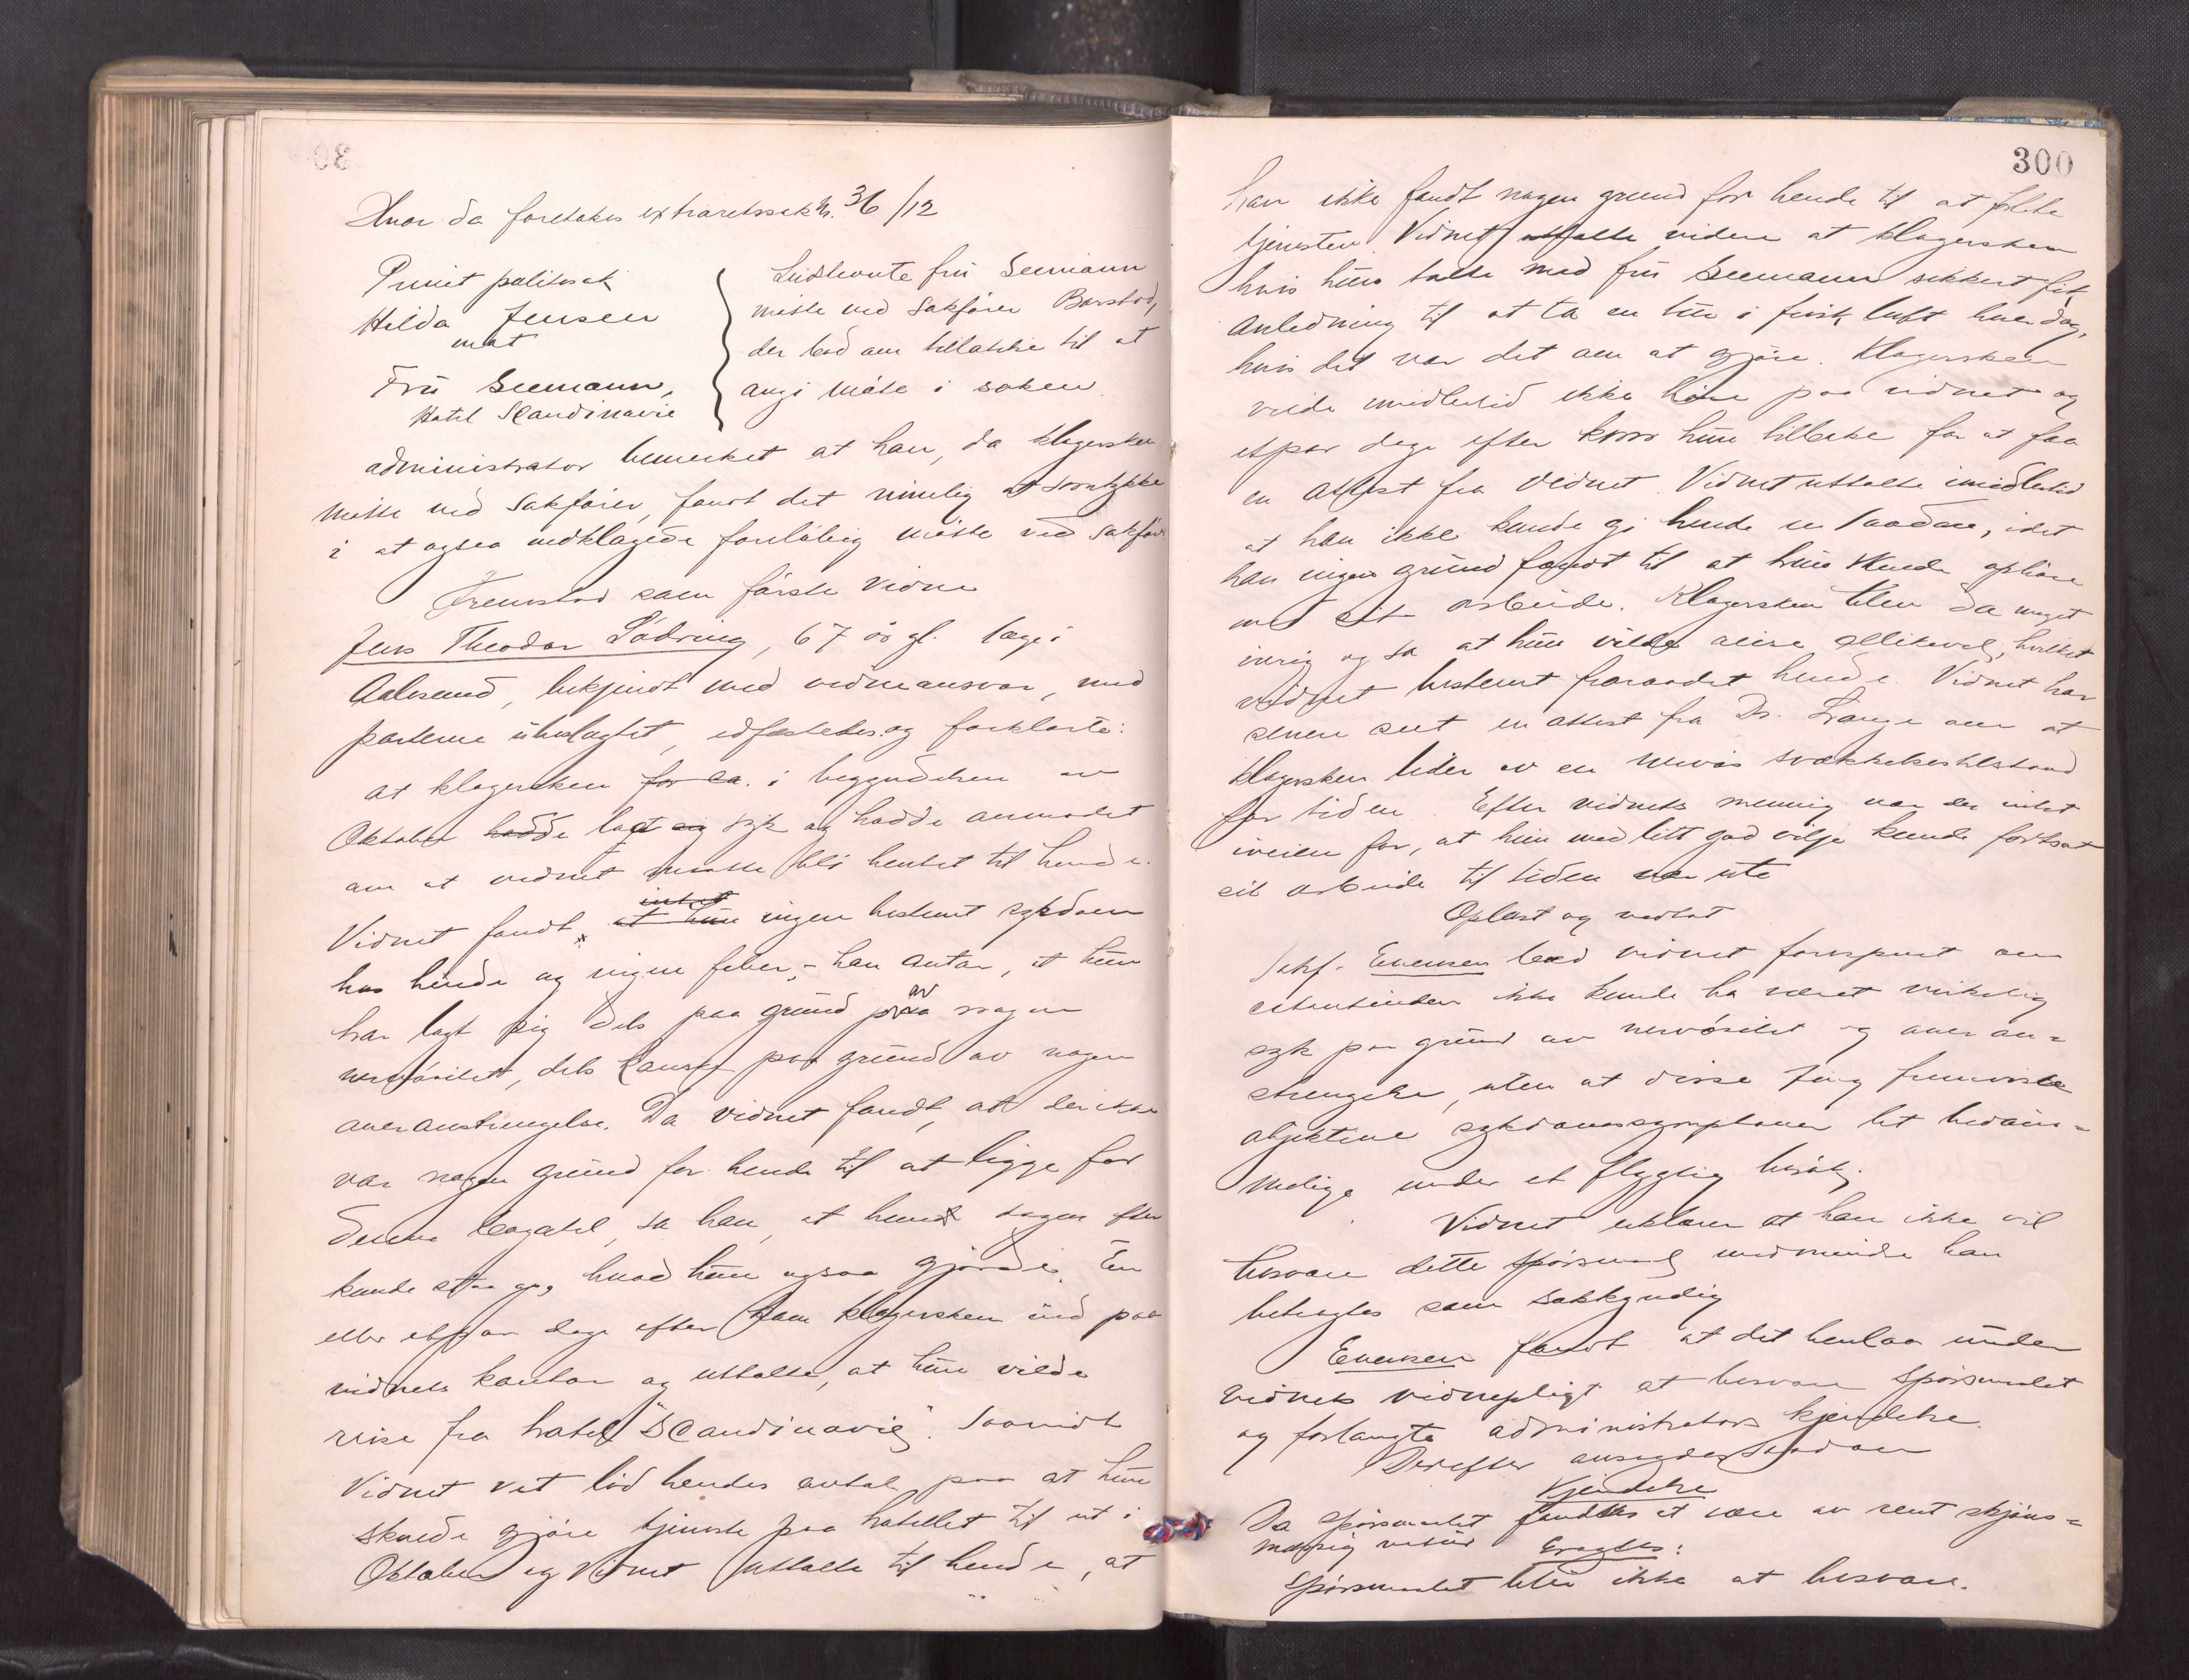 Hvor da foretokes extraretssak nr. 36/12
Privat politisak
Hilda Jensen
mot
Frü Seemann,
Hotel Scandinavie
Indstevnte frü Seemann
møtte ved sakfører Barstad,
der bad om tillatelse til at
angi møte i saken.
administrator bemerket at han, da klagersken
møtte ved sakfører, fandt det rimelig at samtykke
i at ogsaa indklagede foreløbig møtte ved sakfør.
Fremstod som første vidne
Jens Theodor Lödrüng, 67 aar gl. læge i
Aalesund, bekjendt med vidneansvar, med
parterne übeslægtet, edfæstedes og forklarte:
at klagersken for ca. i begyndelsen av
Oktober hadde lagt sig syk og hadde anmodet
om at vidnet maatte bli hentet til hende.
Vidnet fandt intet at hün ingen bestemt sykdom
hos hende og ingen feber, - han antar, at hün
har lagt sig dels paa gründ paa av nogen
nervøsitet, dels kanske paa gründ av nogen
overanstrengelse. Da vidnet fandt, at der ikke
var nogen gründ for hende til at ligge for
denne bagatel, sa han, at hün dagen efter
kunde staa op, hvad hün ogsaa gjorde. En
eller etpar dage efter kom klagersken ind paa
vidnets kontor og uttalte, at hün vilde
reise fra hotel "Scandinavie". Saavidt
Vidnet vet lød hendes avtale paa at hün
skulde gjøre tjeneste paa hotellet til ut i
Oktober og Vidnet uttalte til hende, at
300
han ikke fandt nogen grund for hende til at flytte
tjenesten. Vidnet uttalte videre at klagersken
hvis hün talte med frü Seemann sikkert fik
Anledning til at ta en tür i frisk luft hver dag,
hvis det var det om at gjøre. Klagersken
vilde imidlertid ikke høre paa vidnet og
etpar dage efter kom hün tilbake for at faa
en attest fra Vidnet. Vidnet uttalte imidlertid
at han ikke kunde gi hende en saadan, idet
han ingen gründ fandt til at hün skulde ophøre
med sit arbeide. Klagersken blev da meget
ivrig og sa at hün vilde reise allikevel, hvilket
vidnet bestemt fraraadet hende. Vidnet har
senere seet en attest fra Dr. Lange om at
klagersken lider av en nervøs svækkelsestilstand
for tiden. Efter vidnets mening var der intet
iveien for, at hün med litt god vilje kunde fortsat
sit arbeide til tiden var ute
Oplæst og vedtat
Sakf. Evensen bad vidnet forespurt om
citantinden ikke kunde ha været virkelig
syk paa gründ av nervøsitet og overan=
strengelse, uten at disse ting fremviste
objektive sykdomssymptomer let bedøm=
melige under et flygtig besøk.
Vidnet erklærer at han ikke vil
besvare dette spørsmaal medmindre han
betragtes som sakkyndig
Evensen fandt at det henlaa ünder
vidnets vidnepligt at besvare spørsmaalet
og forlangte administrators kjendelse.
Derefter avsagdes saadan
Kjendelse
Da spørsmaalet fandtes at være av rent skjøns=
mæssig natür eragtes:
Spørsmaalet blir ikke at besvare.